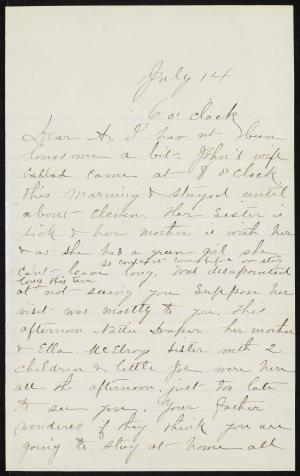 July 14
6 o'clock
Dear A. I have not been
lonesome a bit. John's wife
called came at 8 o'clock
this morning & stayed until
about eleven. Her sister is
sick & her mother is with her
& as she has a green girl she
so couldn't stay
can't leave long. Was disapointed
long this time
at not seeing you Suppose her
visit was mostly to you. This
afternoon Nattie Draper her mother
& Ella McElroy Sister with 2
children & little Joe were here
all the afternoon. just too late
to see you. Your father
wonders if they think you are
going to stay at home all